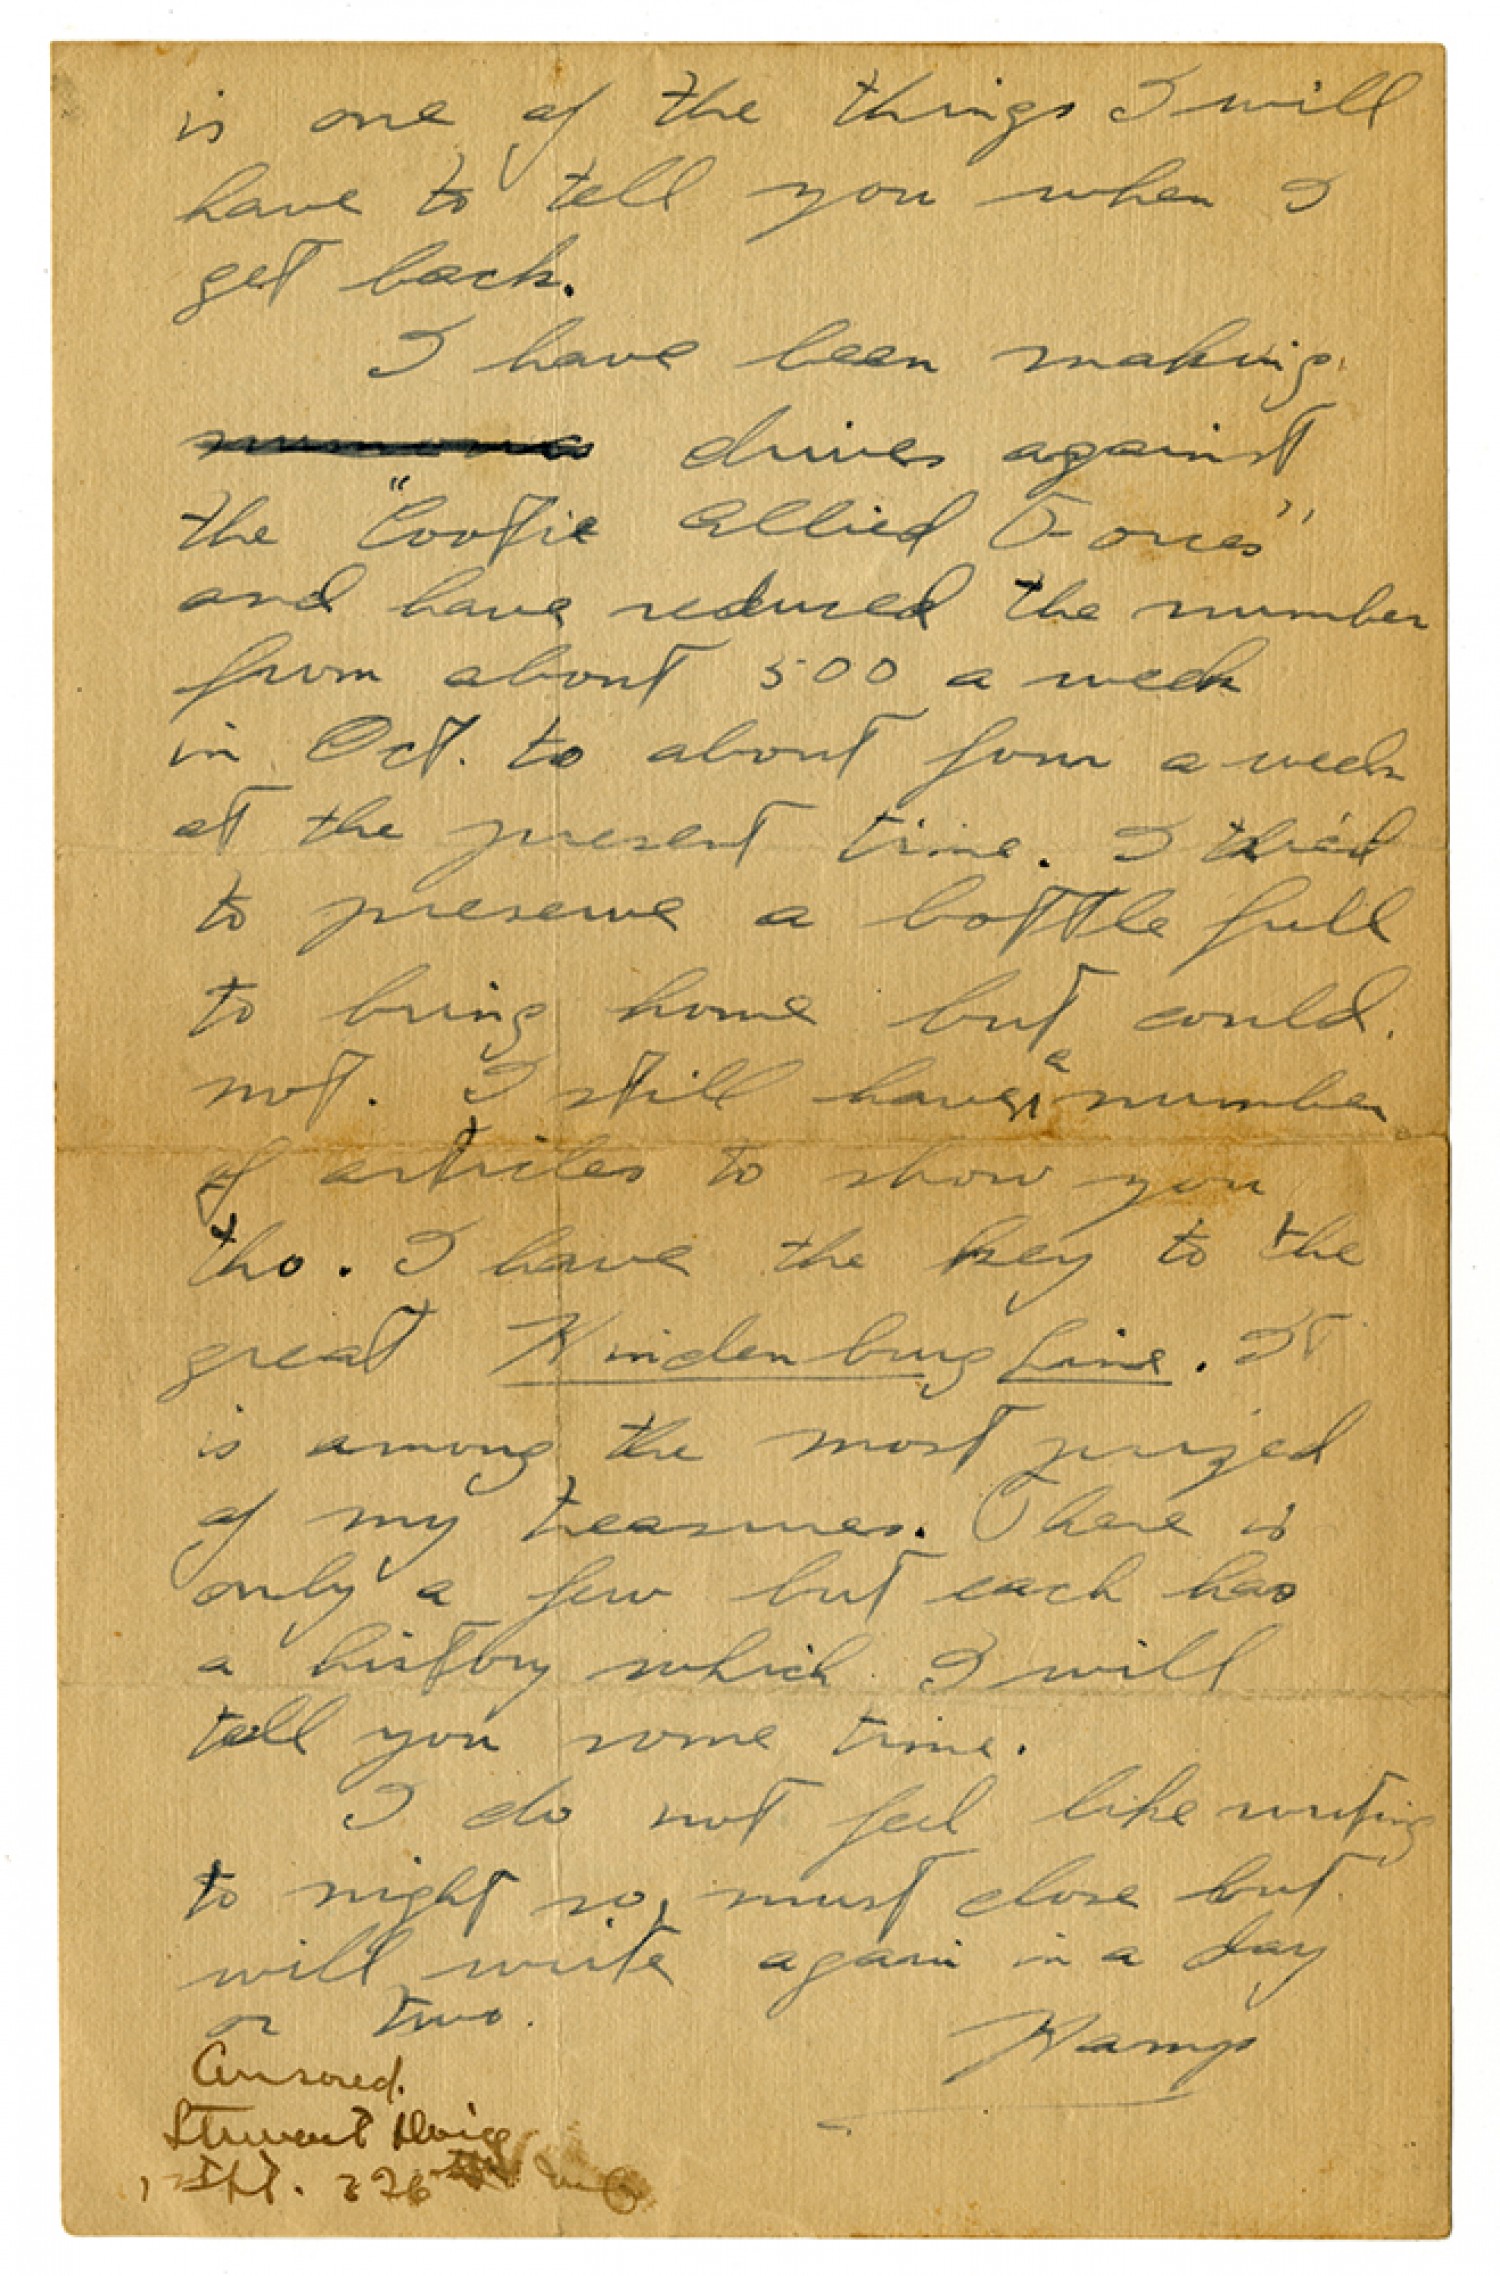 is one of the things I will
have to tell you when I
get back.
I have been making
drives against
the "Cootie Allied Forces"
and have reduced the number
from about 500 a week
in Oct. to about four a week
at the present time. I tried
to preserve a bottle full
to bring home but could
not. I still have a number
of articles to show you
tho. I have the key to the
great Hindenburg Line. It
is among the most prized
of my treasures. There is
only a few but each has
a history which I will
tell you some time.
I do not feel like writing
to night so must close but
will write again in a day
or two.
Censored.
Stewart
1st Lt.